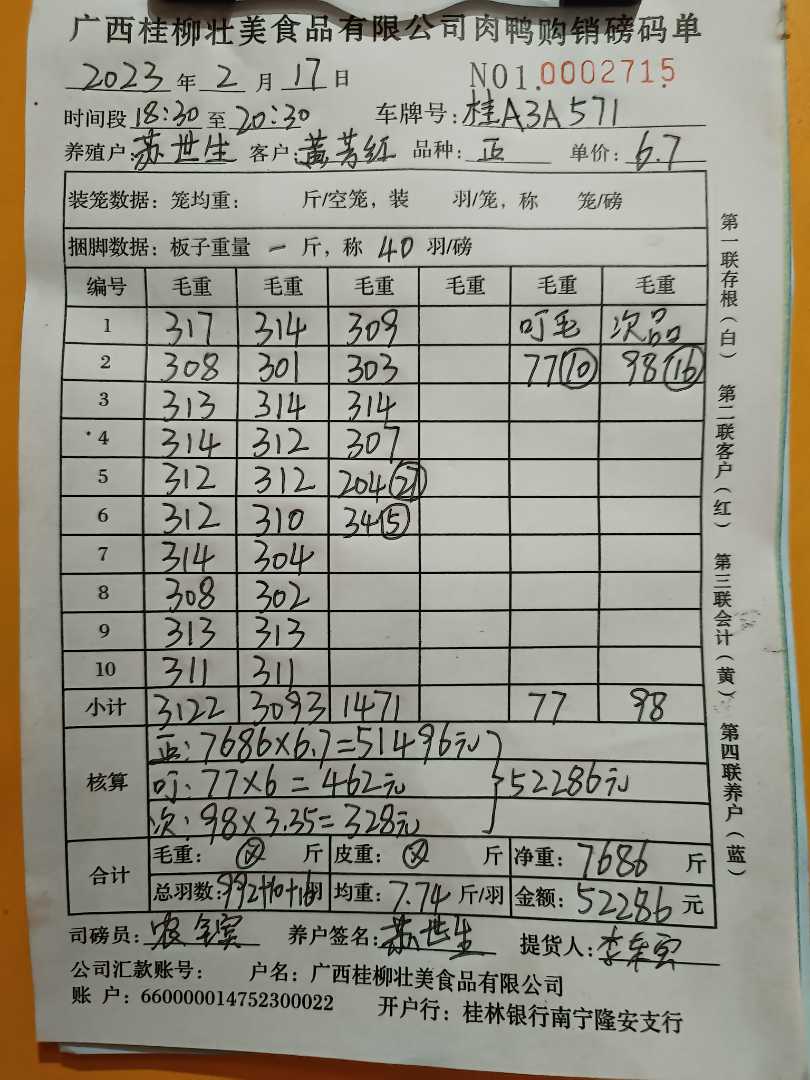 广西桂柳壮美食品有限公司肉鸭购销磅码单
2023 年 2 月 17 日 NO1.0002715
时间段 18:30 至 20:30 车牌号: 桂A3A571
养殖户: 苏世生 客户: 黄芳红 品种: 正 单价: 6.7
装笼数据: 笼均重: 斤/空笼, 装 羽/笼, 称 笼/磅
捆脚数据: 板子重量 一 斤, 称 40 羽/磅
编号 毛重 毛重 毛重 毛重 毛重 毛重
1 317 314 309 叮毛 次品
2 308 301 303 77⑩ 98⑯
3 313 314 314
4 314 312 307
5 312 312 204㉗
6 312 310 34⑤
7 314 304
8 308 302
9 313 313
10 311 311
小计 3122 3093 1471 77 98
核算
正: 7686×6.7=51496元
叮: 77×6=462元
次: 98×3.35=328元
52286元
合计 毛重: 斤 皮重: 斤 净重: 7686 斤
总羽数: 992+10+16 羽 均重: 7.74 斤/羽 金额: 52286 元
司磅员: 养户签名: 苏世生 提货人:
公司汇款账号: 户名: 广西桂柳壮美食品有限公司
账 户: 660000014752300022 开户行: 桂林银行南宁隆安支行
第一联存根(白) 第二联客户(红) 第三联会计(黄) 第四联养户(蓝)